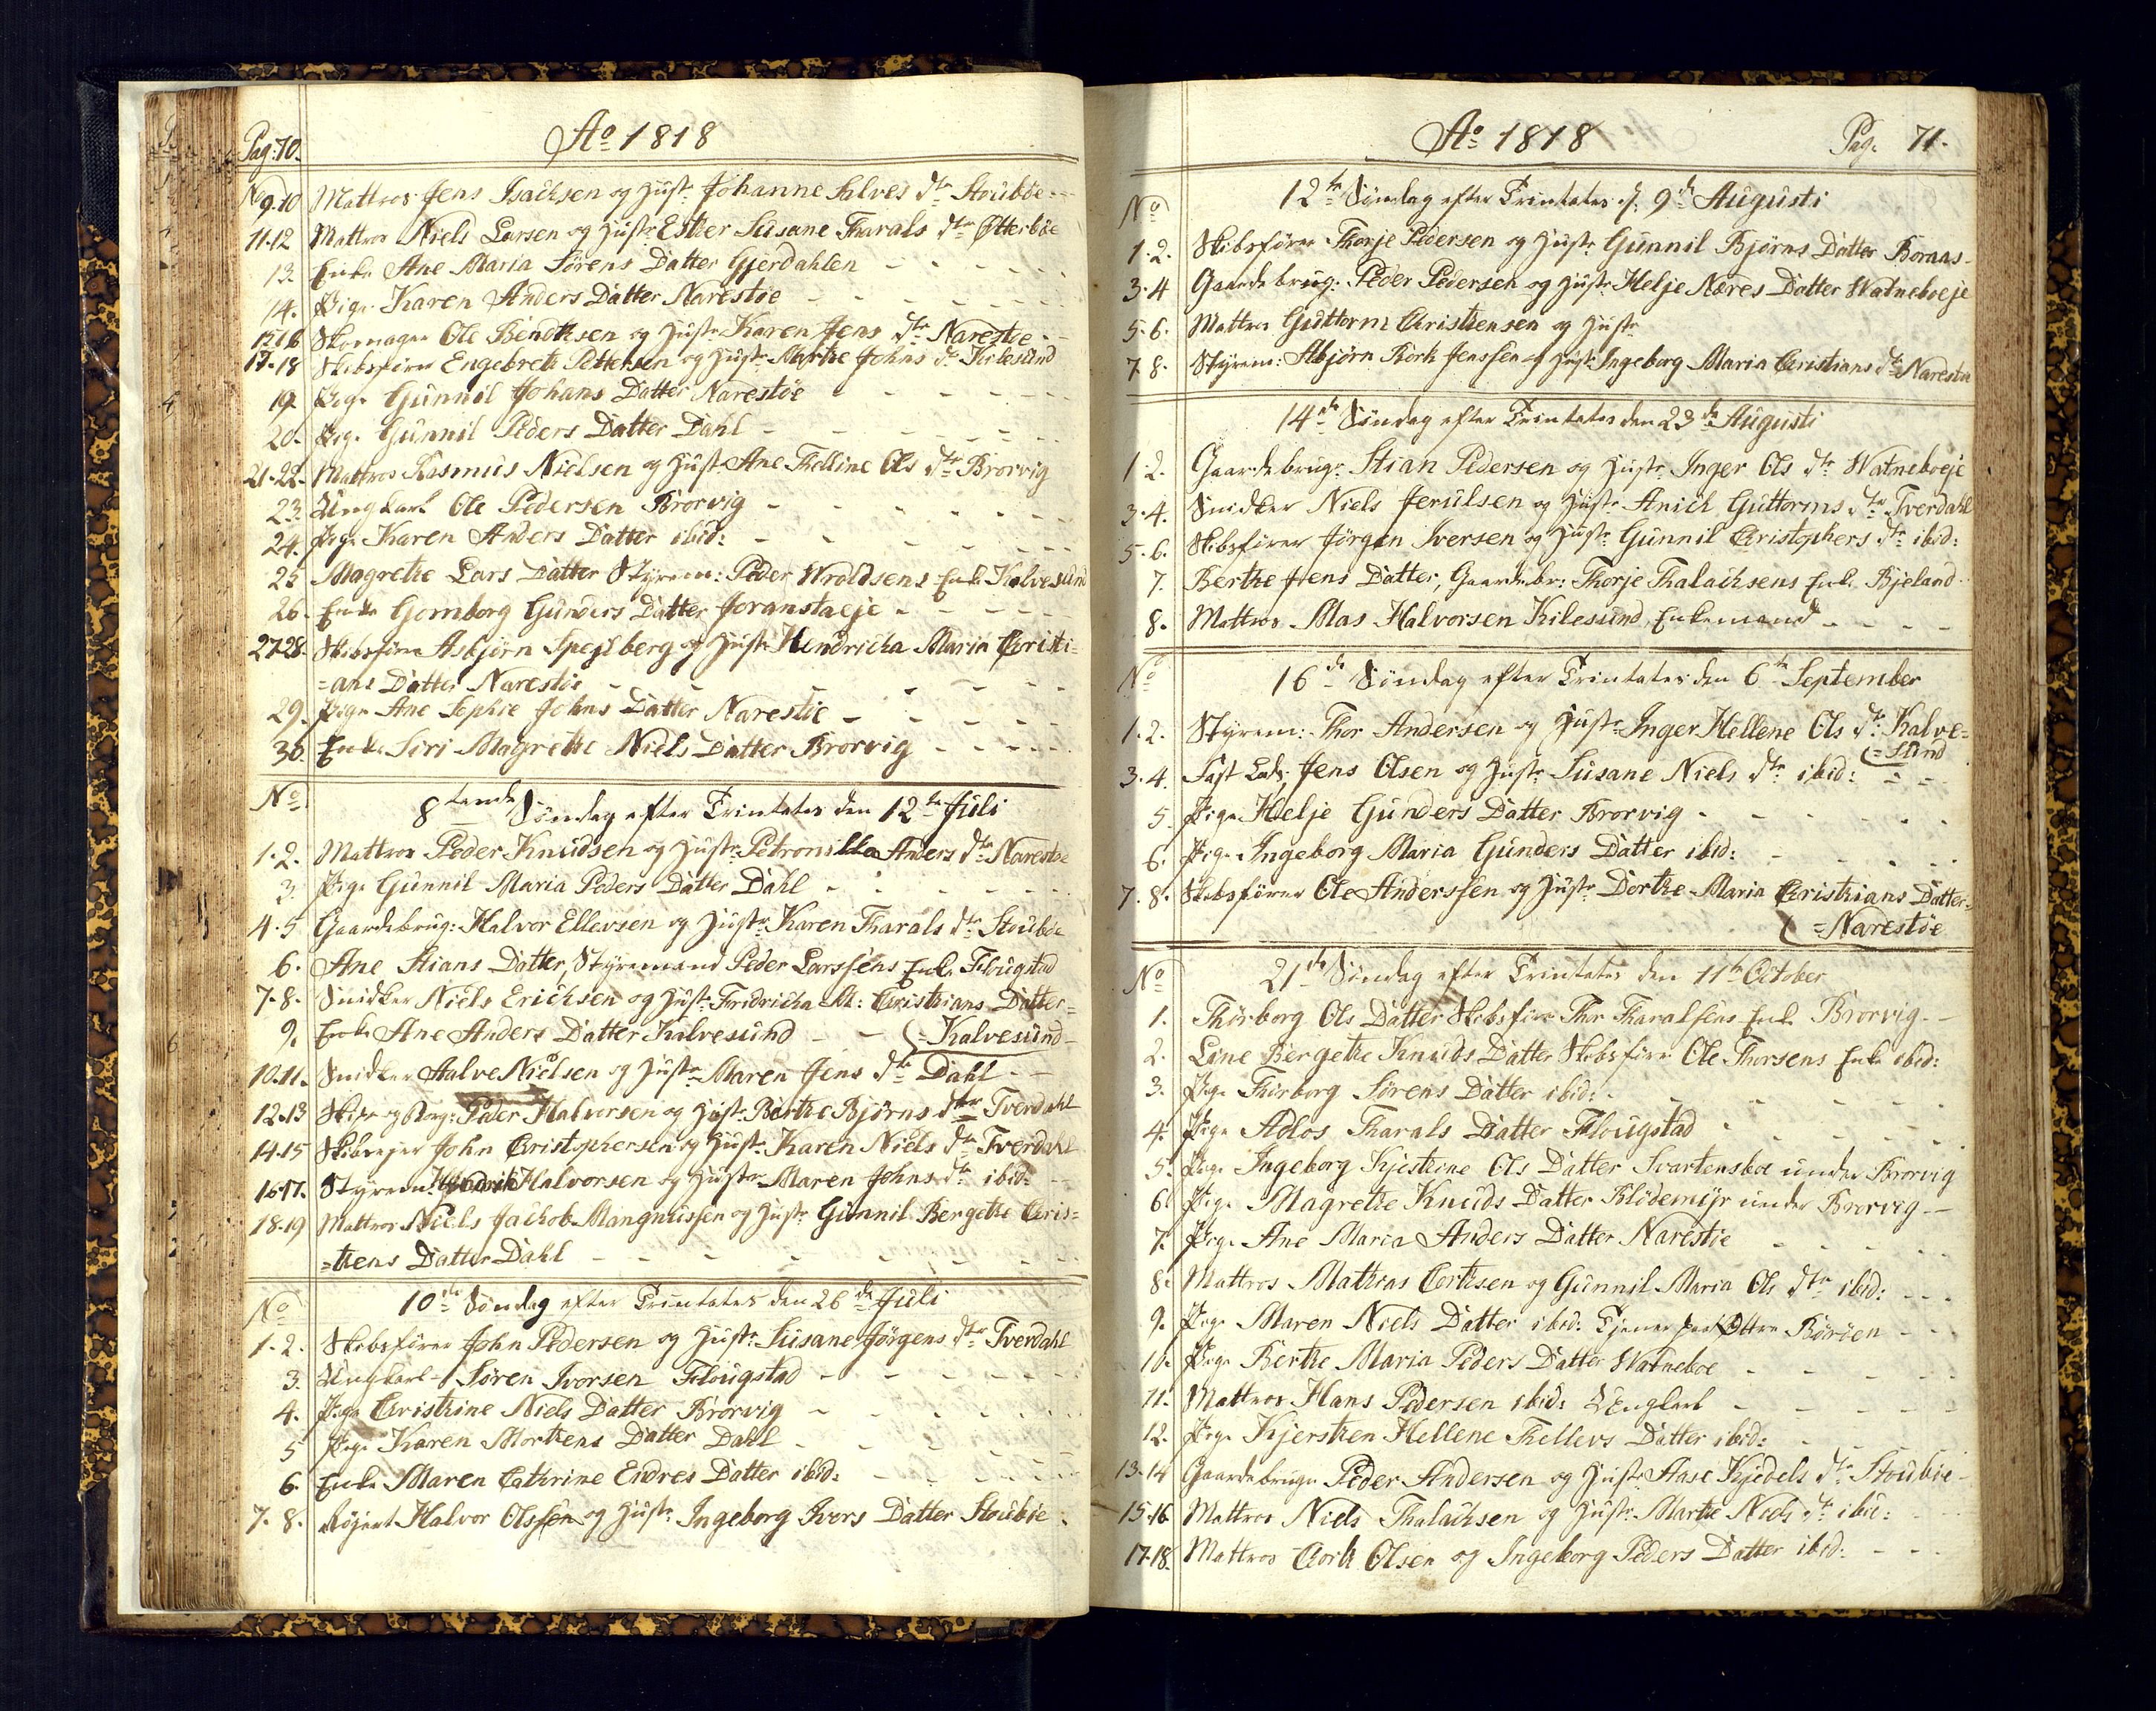 Pag: 70.
Ao 1818
No 9.10 Mattros Jens Isachsen og Hustr Johanne Salves dtr Stouböe
11.12 Mattros Niels Larsen og Hustr Ester Susane Tharals dtr Otterböe
13. Enke Ane Maria Sörens Datter Gjerdahlen
14. Pige Karen Anders Datter Narestöe
15.16 Skomager Ole Bendtsen og Hustr Karen Jens dtr Narestöe
17.18 Skibsfører Engebreth Pettersen og Hustr Marthe Johns dr Kilesund
19 Pige Gunnil Johans Datter Narestöe
20. Pige Gunnil Peders Datter Dahl
21.22. Mattros Rasmus Nielsen og Hustr Ane Thelline Ols dtr Brorvig
23. Ungkarl Ole Pedersen Brorvig
24. Pige Karen Anders Datter ibid:
25 Magrethe Lars Datter Styrem: Peder Wroldsens Enke Kalvesund
26. Enke Gomborg Gunders Datter Joranstaeje
27.28. Skibsfører Asbjörn Spejlberg og Hustr Hendricha Maria Christi=
=ans Datter Narestöe
29. Pige Ane Sophie Johns Datter Narestöe
30. Enke Siri Magrethe Niels Datter Brorvig
No 8tende Søndag efter Trinitatis den 12te Juli
1.2. Mattros Peder Knudsen og Hustr Petronilla Anders dtr Narestöe
3. Pige Gunnil Maria Peders Datter Dahl
4.5 Gaardebrug: Halvor Ellevsen og Hustr Karen Tharals dtr Stouböe
6. Ane Stians Datter, Styremand Peder Larssens Enke Flougstad
7.8. Snidker Niels Erichsen og Hustr Fridricha M: Christians Datter=
=Kalvesund
9. Enke Ane Anders Datter Kalvesund
10.11. Snidker Salve Nielsen og Hustr Maren Jens dtr Dahl
12.13 Peder Halvorsen og Hustr Berthe Björns dtr Tverdahl
14.15 Skibsejer John Christophersen og Hustr Karen Niels dtr Tverdahl
16.17. Styrem: Hendrik Halvorsen og Hustr Maren Johns dtr ibid:
18.19 Mattros Niels Jachob Mangnussen og Hustr Gunnil Bergethe Chris=
=thens Datter Dahl
No 10de Søndag efter Trinitatis den 26de Juli
1.2. Skibsfører John Pedersen og Hustr Susane Jörgens dtr Tverdahl
3. Ungkarl Sören Ivorsen Flougstad
4. Pige Christhine Niels Datter Brorvig
5 Pige Karen Morthens Datter Dahl
6. Enke Maren Cathrine Endres Datter ibid:
7.8. Halvor Olssen og Hustr Ingeborg Ivors Datter Stouböe
Ao 1818
Pag. 71.
No 12te Søndag efter Trinitatis d: 9de Augusti
1.2. Skibsfører Thorje Pedersen og Hustr Gunnil Björns Datter Boraas
3.4 Gaardebrug: Peder Pedersen og Hustr Helje Næres Datter Watneboeje
5.6. Mattros Guttorm Christhensen og Hustr
7.8. Styrem: Abjörn Thork Jenssen og Hustr Ingeborg Maria Christians dtr Narestöe
14de Søndag efter Trinitatis den 23de Augusti
1.2. Gaardebrug: Stian Pedersen og Hustr Inger Ols dtr Watneboeje
3.4. Snidker Niels Jerulsen og Hustr Anich Guttorms dtr Tverdahl
5.6. Skibsfører Jörgen Iversen og Hustr Gunnil Christophers dtr ibid:
7. Berthe Jens Datter, Gaardebr: Thorje Thalachsens Enke Bjeland
8. Mattros Mas Halvorsen Kilesund, Enkemand
No 16de Søndag efter Trinitatis den 6te September
1.2. Styrem: Thor Andersen og Hustr Inger Hellene Ols dtr Kalve=
=sund
3.4. Fast Lods Jens Olsen og Hustr Susane Niels dtr ibid:
5. Pige Helje Gunders Datter Brorvig
6. Pige Ingeborg Maria Gunders Datter ibid:
7.8. Skibsfører Ole Anderssen og Hustr Dorthe Maria Christhians Datter=
=Narestöe
No 21de Søndag efter Trinitatis den 11te October
1. Thörborg Ols Datter Skibsfører Thor Tharalsens Enke Brorvig
2. Line Bergethe Knuds Datter Skibsfører Ole Thorsens Enke ibid:
3. Pige Thörborg Sörens Datter ibid:
4. Pige Adlos Tharals Datter Flougstad
5. Pige Ingeborg Kjisthine Ols Datter Svartensboe under Brorvig
6. Pige Magrethe Knuds Datter Blödemyr under Brorvig
7. Pige Ane Maria Anders Datter Narestöe
8. Mattros Mathias Corthsen og Gunnil Maria Ols dtr ibid:
9. Pige Maren Niels Datter ibid: Tjener paa Ottre Böröen
10. Pige Berthe Maria Peders Datter Watneboe
11. Mattros Hans Pedersen ibid: Ungkarl
12. Pige Kjersthen Hellene Thellevs Datter ibid:
13.14 Gaardebruger Peder Andersen og Hustr Aase Kjedels dtr Stouböe
15.16 Mattros Niels Thalachsen og Hustr Marthe Niels dtr ibid:
17.18. Mattros Corth Olsen og Ingeborg Peders Datter ibid: